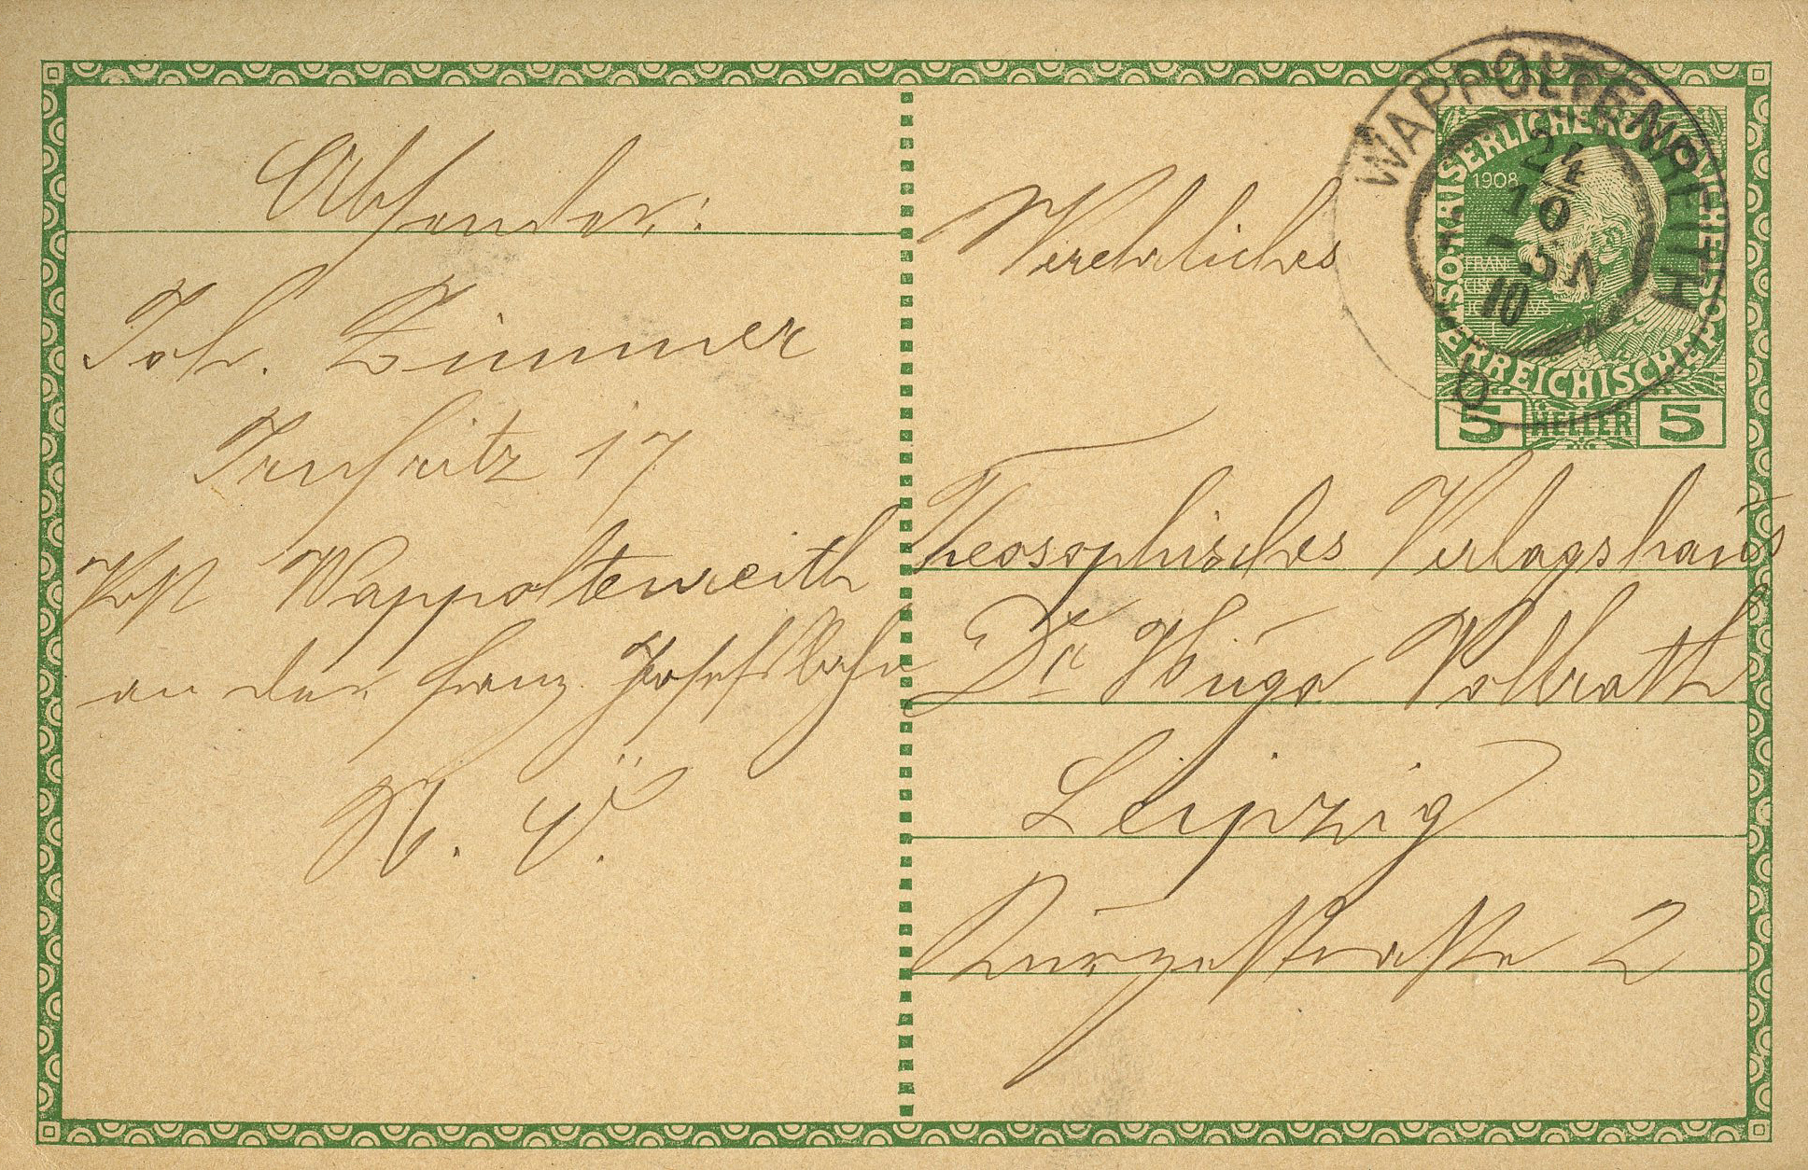 Absender:
Joh. Zimmer
Irnfritz 17
Post Wappoltenreith
an der Franz Josefsbahn
N. Ö.
Verehrliches
Theosophisches Verlagshaus
Dr. Hugo Vollrath
Leipzig
Kurzestrasse 2
WAPPOLTENREITH
24
10
5N
10
b
KAISERLICHE KÖNIGLICHE
ÖSTERREICHISCHE POST
1908
5 HELLER 5